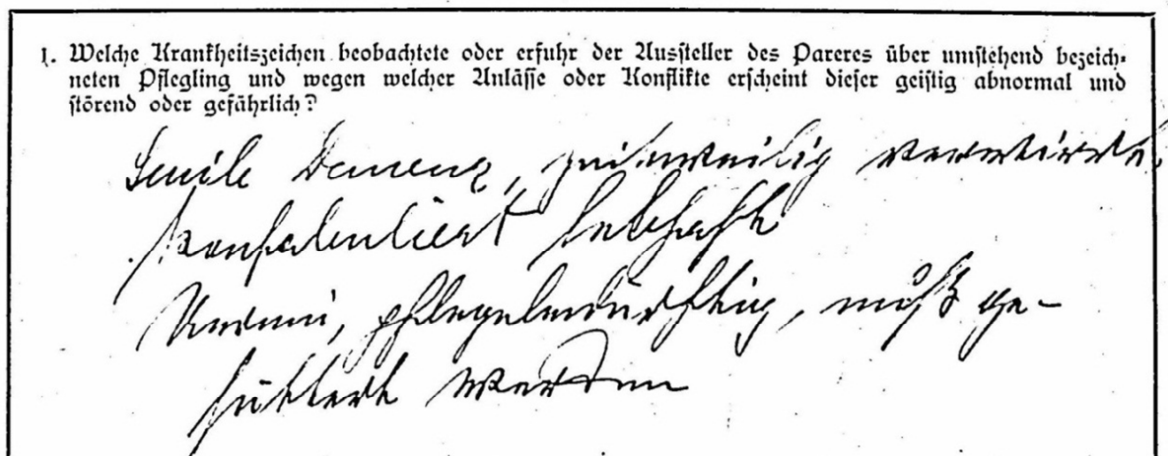 1. Welche Krankheitszeichen beobachtete oder erfuhr der Aussteller des Pareres über umstehend bezeich-
neten Pflegling und wegen welcher Anlässe oder Konflikte erscheint dieser geistig abnormal und
störend oder gefährlich?
Senile Demenz, zeitweilig verwirrt,
konfabuliert lebhaft
pflegebedürftig, muß ge-
füttert werden